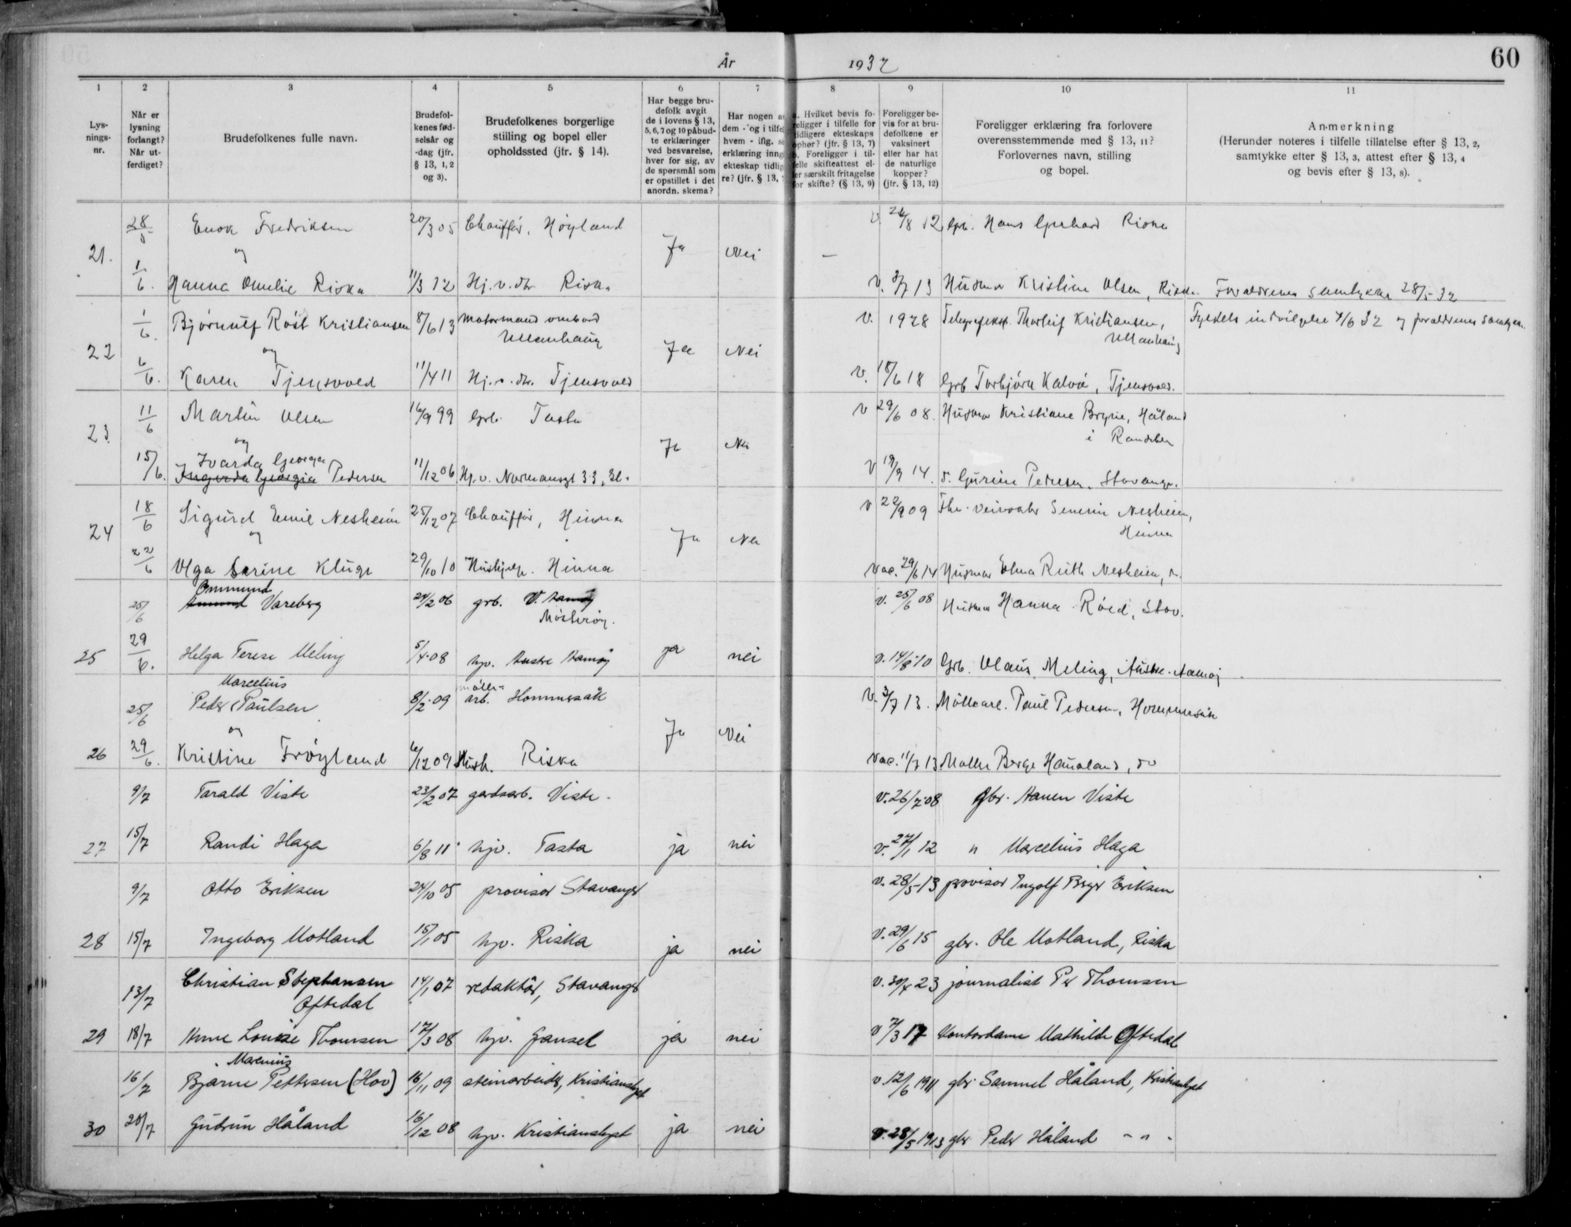 År 1932
60
1 2 3 4 5 6 7 8 9 10 11
Lys-
nings-
nr.
Når er
lysning
forlangt?
Når ut-
ferdiget?
Brudefolkenes fulle navn.
Brudefol-
kenes fød-
selsår og
-dag (jfr.
§ 13, 1, 2
og 3).
Brudefolkenes borgerlige
stilling og bopel eller
opholdssted (jfr. § 14).
Har begge bru-
defolk avgit
de i lovens § 13,
5, 6, 7 og 10 påbud-
te erklæringer
ved besvarelse,
hver for sig, av
de spørsmål som
er opstillet i det
anordn. skema?
Har nogen a
dem - og i tilfe
hvem - iflg. s
erklæring inng
ekteskap tidlig
re? (jfr. § 13,
. Hvilket bevis fo-
religger i tilfelle for
tidligere ekteskaps
ophør? (jfr. § 13, 7)
. Foreligger i til-
elle skifteattest el-
er særskilt fritagelse
or skifte? (§ 13, 9)
Foreligger be-
vis for at bru-
defolkene er
vaksinert
eller har hat
de naturlige
kopper?
(jfr. § 13, 12)
Foreligger erklæring fra forlovere
overensstemmende med § 13, 11?
Forlovernes navn, stilling
og bopel.
Anmerkning
(Herunder noteres i tilfelle tillatelse efter § 13, 2,
samtykke efter § 13, 3, attest efter § 13, 4
og bevis efter § 13, 8).
28/5 Enok Fredriksen 20/3 05 Chauffør, Høyland v 12 Gbr. Hans Riska
21. og Ja Nei —
1/6. Hanna Omelie Riska 11/3 12 Hj. v. do Riska v. 3/7 13 Husmor Kristine Olsen, Riska. Foreldrenes samtykke 28/5-32
1/6. Bjørnulf Kristiansen 8/6 13 Motormand ombord v. 1928 Telegrafeksp. Thorleif Kristiansen, Fylkets 32 og foreldrenes
Ullanhaug Ullanhaug
22 og Ja Nei
6/6. Karen Tjensvold 11/4 11 Hj. v. do. Tjensvold v. 18/6 18 Grb Torbjørn Kalvå, Tjensvold.
11/6 Martin Olsen 16/9 99 Grb. Tasta v 29/6 08. Husmor Kristiane Bryne, Håland
i Randaberg
23 og Ja Nei
Ivarda Georgea
15/6. Ingerda Georgia Pedersen 11/12 06 Hj. v. Normannsgt 33, St. v 19/9 14. d. Gurine Pedersen, Stavanger.
18/6 Sigurd Emil Nesheim 25/12 07 Chauffør, Hinna v 22/9 09 Fhv. Nesheim,
Hinna
24 og Ja Nei
22/6 Olga Serine Kluge 29/10 10 Hushjelp. Hinna vac. 29/6 14 Husmor Elna Ruth Nesheim, d.
Ommund
25/6 Vareberg 29/2 06 grb. V. Åmøy v. 25/6 08 Husmor Hanna Røed, Stav.
Mosterøy.
25 29/6. Helga Terese Meling 5/4-08 hjv. Austre Åmøy ja nei v. 14/8-10 Grb. Olaus Meling, Austre-Åmøy
Marcelius møller-
25/6 Peder Paulsen 8/2-09 arb. Hommersåk v. 3/7 13. Møllearb. Paul Pedersen, Hommersåk
og Ja Nei
26 29/6. Kristine Frøyland 6/12 09 Hush. Riska vac. 11/7 13 Møller Berge Haualand, do
9/7 Tarald Viste 23/2 07 gardsarb. Viste. v. 26/7-08 gbr. Aanen Viste
27 15/7 Randi Haga 6/8 11 hjv. Tasta ja nei v. 27/1 12 " Marcelius Haga
9/7 Otto Eriksen 24/10 05 provisor Stavanger v. 28/5-13 provisor Ingolf Birger Eriksen
28 15/7 Ingeborg Motland 15/1 05 hjv. Riska ja nei v. 29/6 15 gbr. Ole Motland, Riska
13/7 Christian Stephansen 14/1 07 redaktør, Stavanger v. 30/4 23 journalist Per Thomsen
Oftedal
29 18/7 Anne Louise Thomsen 17/3 08 hjv. Gansel ja nei v 7/3 17 Kontordame Mathilde Oftedal
Marenius
16/7 Bjarne Pettersen (Hov) 16/11 09 steinarbeider, Kristianslyst v 12/6 1911 gbr Samuel Håland, Kristianslyst
30 20/7 Gudrun Håland 16/12 08 hjv. Kristianslyst ja nei v. 28/5 1913 gbr Peder Håland - " -